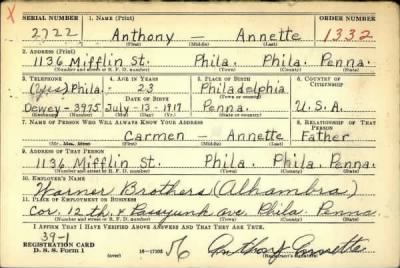 X
SERIAL NUMBER 1. NAME (Print) ORDER NUMBER
2722 Anthony — Annette 1332
(First) (Middle) (Last)
2. ADDRESS (Print)
1136 Mifflin St. Phila. Phila. Penna.
(Number and street or R. F. D. number) (Town) (County) (State)
3. TELEPHONE 4. AGE IN YEARS 5. PLACE OF BIRTH 6. COUNTRY OF CITIZENSHIP
(Yes) Phila. 23 Philadelphia
DATE OF BIRTH (Town or county)
Dewey-3975 July-13-1917 Penna. U.S.A.
(Exchange) (Number) (Mo.) (Day) (Yr.) (State or country)
7. NAME OF PERSON WHO WILL ALWAYS KNOW YOUR ADDRESS 8. RELATIONSHIP OF THAT PERSON
Carmen — Annette Father
(Mr., Mrs., Miss) (First) (Middle) (Last)
9. ADDRESS OF THAT PERSON
1136 Mifflin St. Phila. Phila. Penna.
(Number and street or R. F. D. number) (Town) (County) (State)
10. EMPLOYER'S NAME
Warner Brothers (Alhambra)
11. PLACE OF EMPLOYMENT OR BUSINESS
Cor. 12th. & Passyunk ave. Phila. Penna.
(Number and street or R. F. D. number) (Town) (County) (State)
I AFFIRM THAT I HAVE VERIFIED ABOVE ANSWERS AND THAT THEY ARE TRUE.
39-1
REGISTRATION CARD
D. S. S. Form 1 16—17105 56 Anthony Annette
(Registrant's signature)